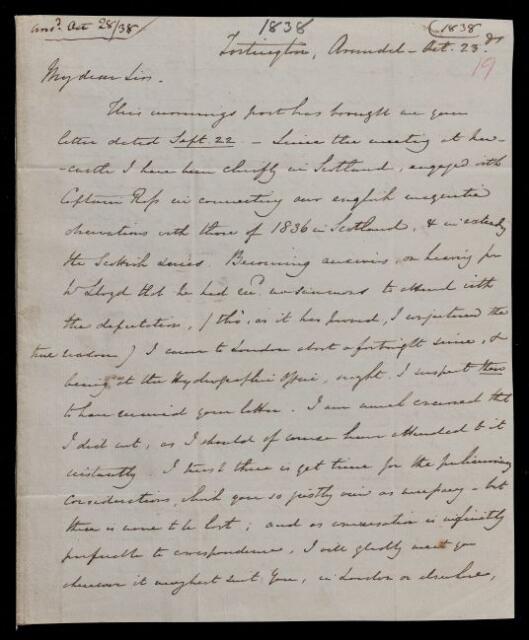 ansd. Oct 28/38
1838
(1838
Tortington, Arundel - Oct. 23.
19
My dear Sir.
This mornings post has brought me your
letter dated Sept. 22. - Since the meeting at New-
-castle I have been chiefly in Scotland, engaged with
Captain Ross in connecting our english magnetic
observations with those of 1836 in Scotland, & in extending
the Scottish series. Becoming anxious on hearing from
Wm Lloyd that he had recd. no summons to attend with
the deputation, (tho', as it has proved, I conjectured the
true reason) I came to London about a fortnight since, &
being at the Hydrographic Office, ought I suspect then
to have received your letter. I am much concerned that
I did not, as I should of course have attended to it
instantly. I trust there is yet time for the preliminary
considerations, which you so justly view as necessary - but
there is none to be lost; and as conversation is infinitely
preferable to correspondence, I will gladly meet you
whenever it may best suit you, in London or elsewhere,